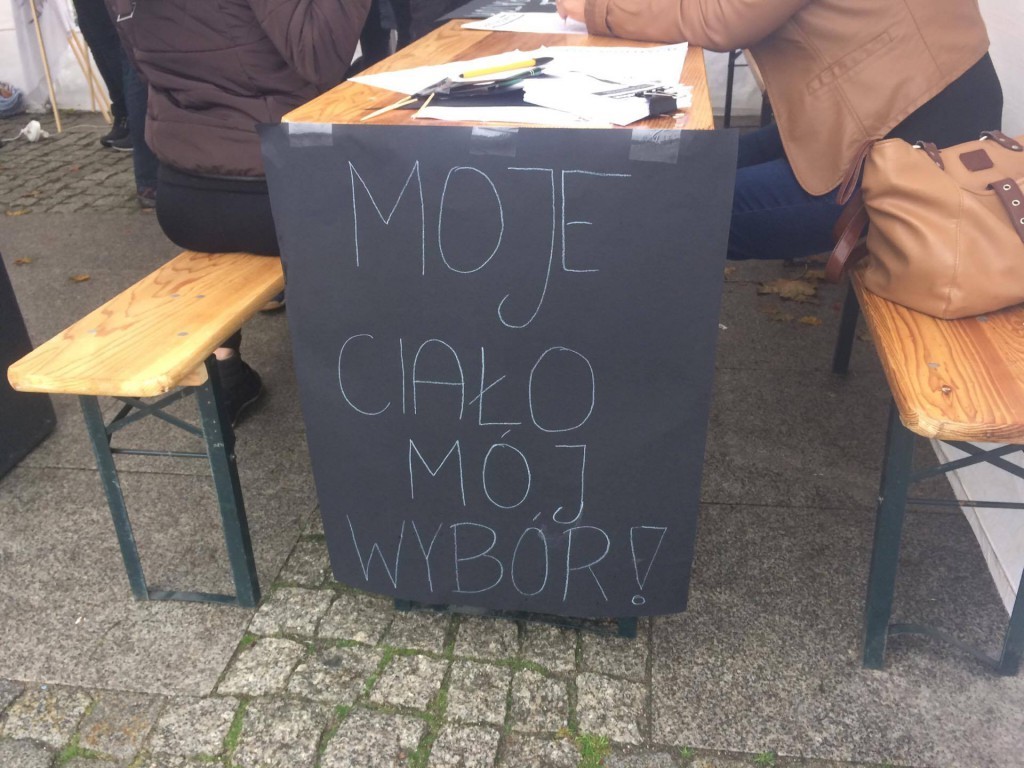 MOJE
CIAŁO
MÓJ
WYBÓR!